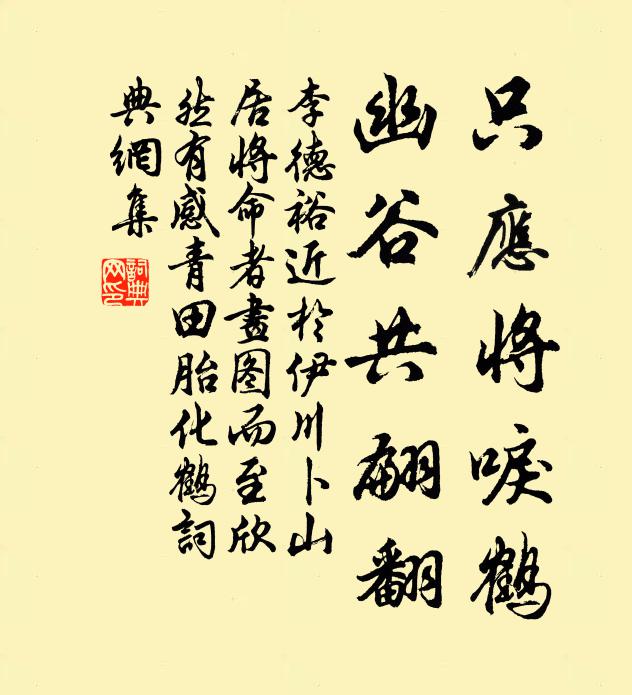 只應將唳鶴
幽谷共翩翻
李德裕近於伊川卜山
居將命者畫图而至欣
然有感青田胎化鶴詞
典網集
詞典
网印